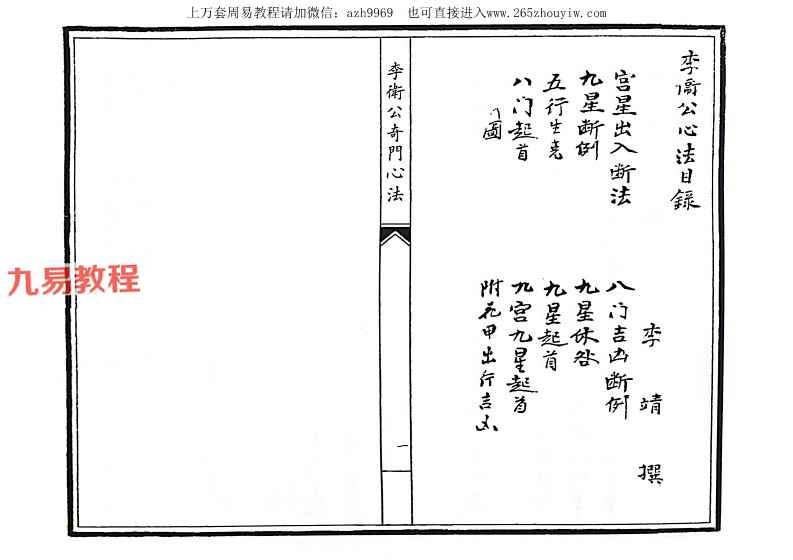 上万套周易教程请加微信：azh9969 也可直接进入www.265zhouyiw.com
李衛公心法目錄
李靖撰
宫星出入断法
八门吉凶断例
九星断例
九星休咎
五行生克
九星起首
八门起首
九宫九星起首
图
附花甲出行吉凶
李衛公奇門心法
一
九易教程